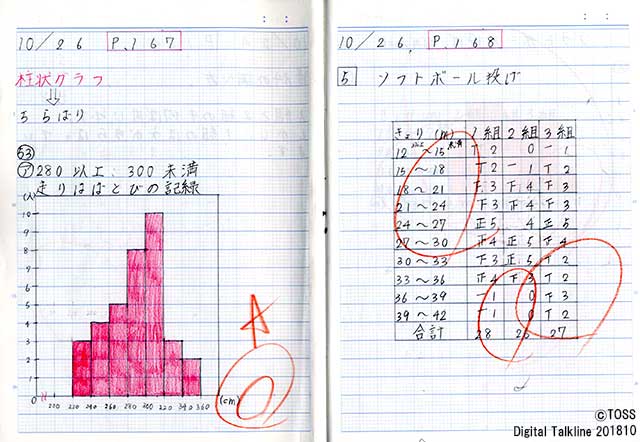 10/26 P.167
柱状グラフ
⇩
ちらばり
53
ア 280以上 300未満
走りはばとびの記録
(人)
10
9
8
7
6
5
4
3
2
1
0
200 220 240 260 280 300 320 340 360 (cm)
A
10/26 P.168
5 ソフトボール投げ
きょり(m) 1組 2組 3組
12以上〜15未満 T2 0 一1
15〜18 T2 一1 T2
18〜21 下3 下4 下3
21〜24 下3 下4 下3
24〜27 正5 4 正5
27〜30 下4 正5 下4
30〜33 下3 正5 T2
33〜36 正4 下3 T2
36〜39 一1 0 下3
39〜42 一1 0 T2
合計 28 26 27
©TOSS
Digital Talkline 201810